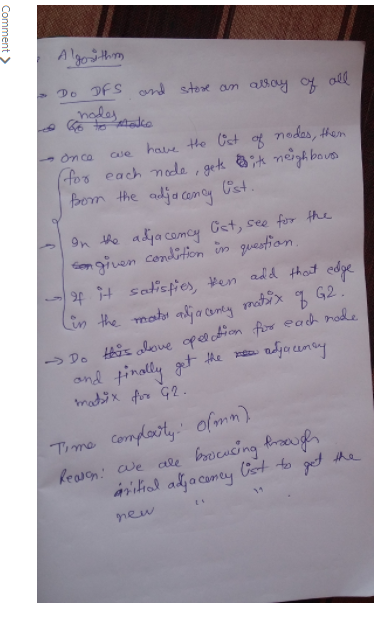 Comment
Algorithm
→ Do DFS and store an array of all
nodes
→ Go to
→ Once we have the list of nodes, then
for each node, get it neighbours
from the adjacency list.
→ In the adjacency list, see for the
given condition in question.
→ If it satisfies, then add that edge
in the adjacency matrix of G2.
→ Do this above operation for each node
and finally get the adjacency
matrix for G2.
Time complexity: O(mn)
Reason: we are browsing through
initial adjacency list to get the
new " "